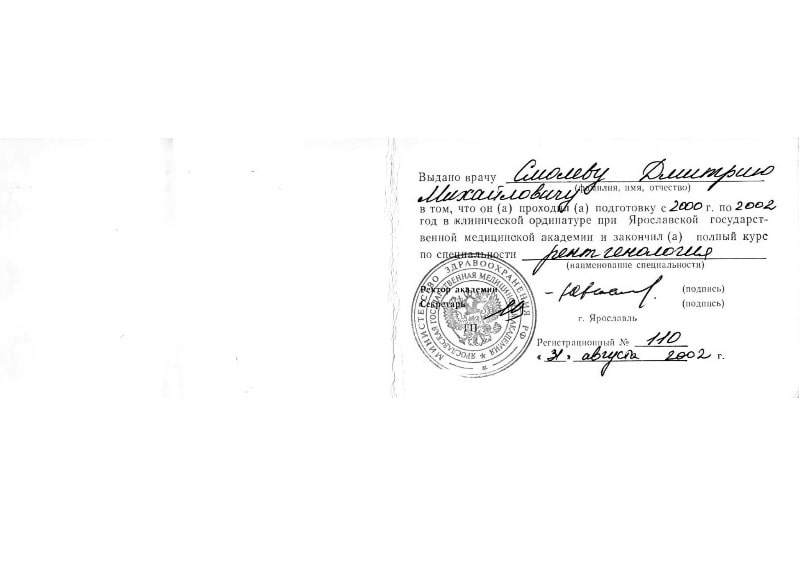 Выдано врачу Смолеву Дмитрию
(фамилия, имя, отчество)
Михайловичу
в том, что он (а) проходил (а) подготовку с 2000 г. по 2002
год в клинической ординатуре при Ярославской государст-
венной медицинской академии и закончил (а) полный курс
по специальности рентгенология
(наименование специальности)
МИНИСТЕРСТВО ЗДРАВООХРАНЕНИЯ РФ
ЯРОСЛАВСКАЯ ГОСУДАРСТВЕННАЯ МЕДИЦИНСКАЯ АКАДЕМИЯ
Ректор академии (подпись)
Секретарь (подпись)
ГП
г. Ярославль
Регистрационный № 110
« 31 » августа 2002 г.